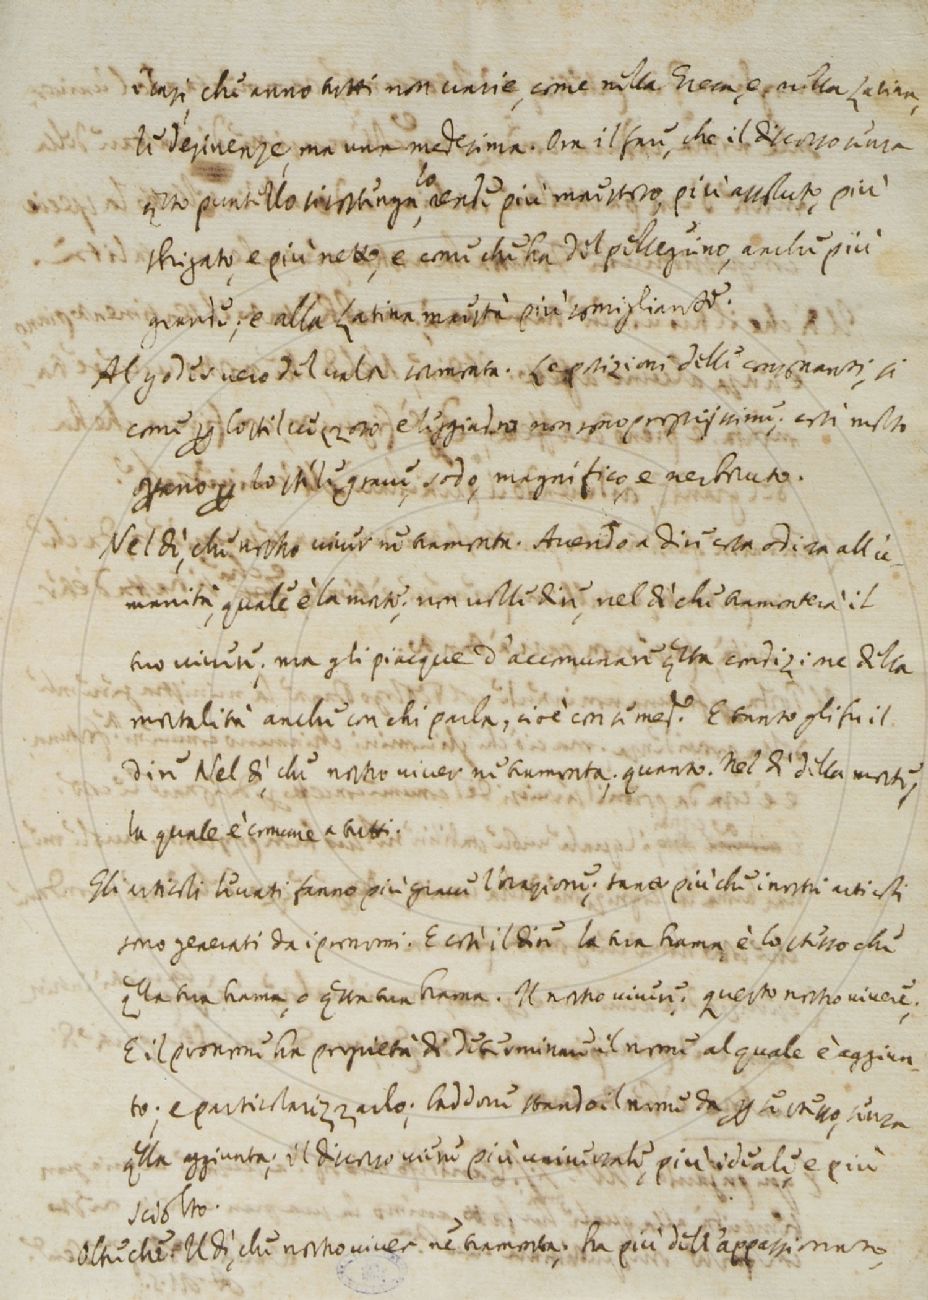 i casi, che anno tutti non varie, come nella Greca, e nella Latina,
le desinenze, ma una medesima. Ora il fare, che il discorso senza
qsto puntello si sostenga, lo rende più maestoso, più assoluto, più
sbrigato, e più netto, e come che ha del pellegrino, anche più
grande; e alla Latina maestà più somigliante.
Al god verno del valor sormonta. Le posizioni delle consonanti, si
come p lo stil vezzoso e leggiadro non sono propriissime; così molto
ostano p lo stile grave, sodo, magnifico, e nerboruto.
Nel dì, che nostro viver ne tramonta. Avendo a dire cosa odiosa all'u-
manità, quale è la morte; non volle dire, nel dì che tramonterà il
tuo vivere; ma gli piacque d'accomunare qlla condizione della
mortalità anche con chi parla, cioè con se med.o E tanto gli fu il
dire Nel dì, che nostro viver ne tramonta; quanto. Nel dì della morte,
la quale è comune a tutti.
Gli articoli levati fanno più grave l'orazione; tanto più che i nostri articoli
sono generati da i pronomi. E così il dire la tua brama, è lo stesso che
qlla tua brama, o qsta tua brama. Il nostro vivere; questo nostro vivere;
E il pronome ha proprietà di determinare il nome al quale è aggiun-
to; e particolarizzarlo; laddove stando il nome da p se stesso, senza
qlla aggiunta; il discorso viene più universale, più ideale, e più
sciolto.
Oltreche. Il dì, che nostro viver ne tramonta; ha più dell'appassionato,